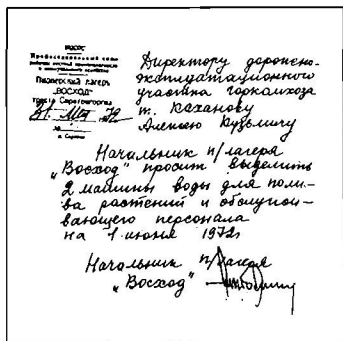 РСФСР
Профессиональный союз
Пионерский лагерь
„ВОСХОД"
треста Саратовгоргаз
31 мая 72
г. Саратов
Директору дорожно-
эксплуатационного
участка горкомхоза
т. Каханову
Алексею Кузьмичу
Начальник п/лагеря
„Восход" просит выделить
2 машины воды для поли-
ва растений и обслужи-
вающего персонала
на 1 июня 1972г
Начальник п/лагеря
„Восход"